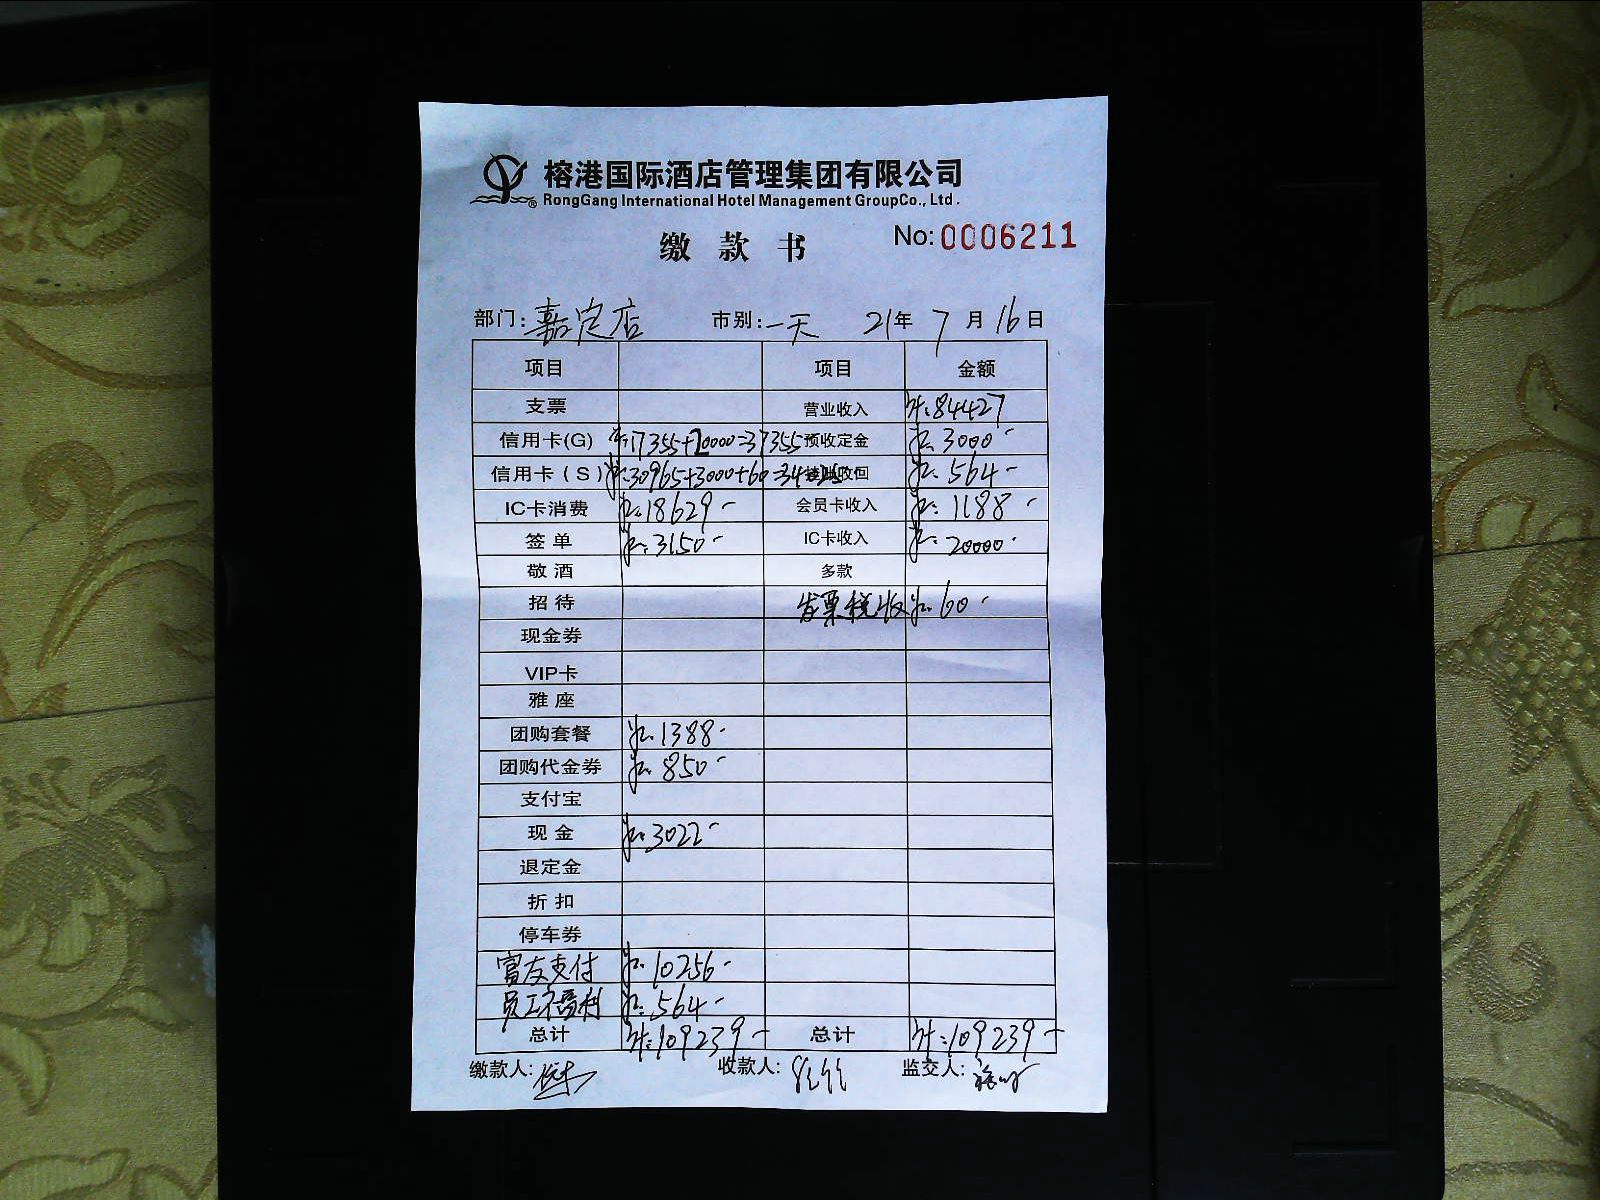 榕港国际酒店管理集团有限公司
RongGang International Hotel Management GroupCo., Ltd.
缴款书
No: 0006211
部门: 嘉定店 市别: 一天 21年 7月 16日
项目 项目 金额
支票 营业收入 84427
信用卡(G) 17355+20000=37355 预收定金 3000
信用卡(S) 30965+3000+60=34025 收回 564
IC卡消费 18629 会员卡收入 1188
签单 3150 IC卡收入 20000
敬酒 多款
招待 发票税收 60
现金券
VIP卡
雅座
团购套餐 1388
团购代金券 850
支付宝
现金 3022
退定金
折扣
停车券
富友支付 10256
员工福利 564
总计 109239 总计 109239
缴款人: 收款人: 监交人: